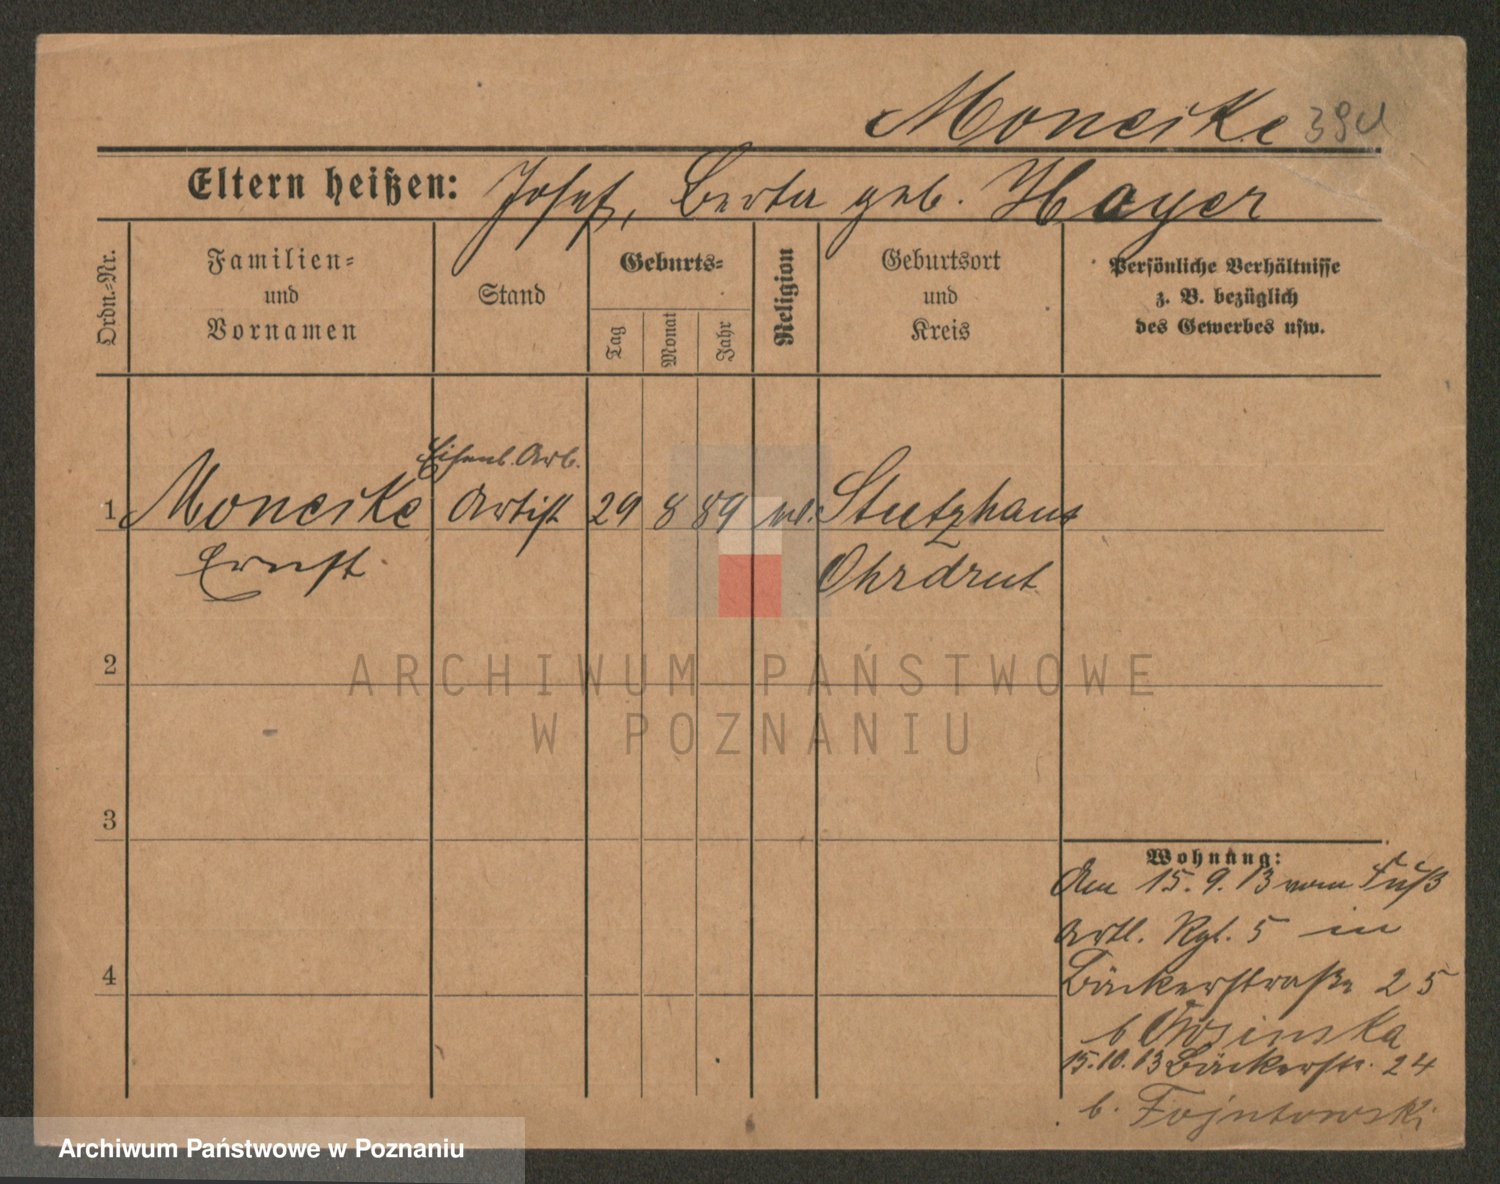 Moncike 394
Eltern heißen: Josef, Berta geb. Hayer
Ordn.-Nr.
Familien-
und
Vornamen
Stand
Geburts-
Tag
Monat
Jahr
Religion
Geburtsort
und
Kreis
Persönliche Verhältnisse
z. B. bezüglich
des Gewerbes usw.
Eisenb. Arb.
1 Moncike Artist 29 8 89 Stutzhaus
Ernst Ohrdruf
2
3
4
Wohnung:
Am 15.9.13 vom Fuß
Artl. Rgt. 5 in
Bäckerstraße 25
b
15.10.13 Bäckerstr. 24
b. Fojutowski
ARCHIWUM PAŃSTWOWE
W POZNANIU
Archiwum Państwowe w Poznaniu